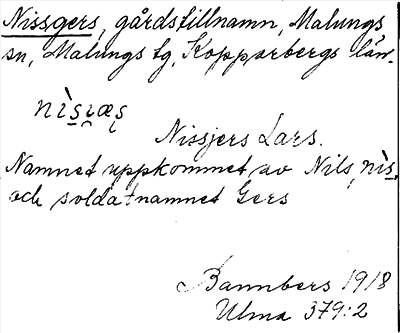 Nissgers, gårdstillnamn, Malungs
sn, Malungs tg, Kopparbergs län.
Nissjers Lars.
Namnet uppkommet av Nils, nìs,
och soldatnamnet Gers
Bannbers 1918
Ulma 379:2